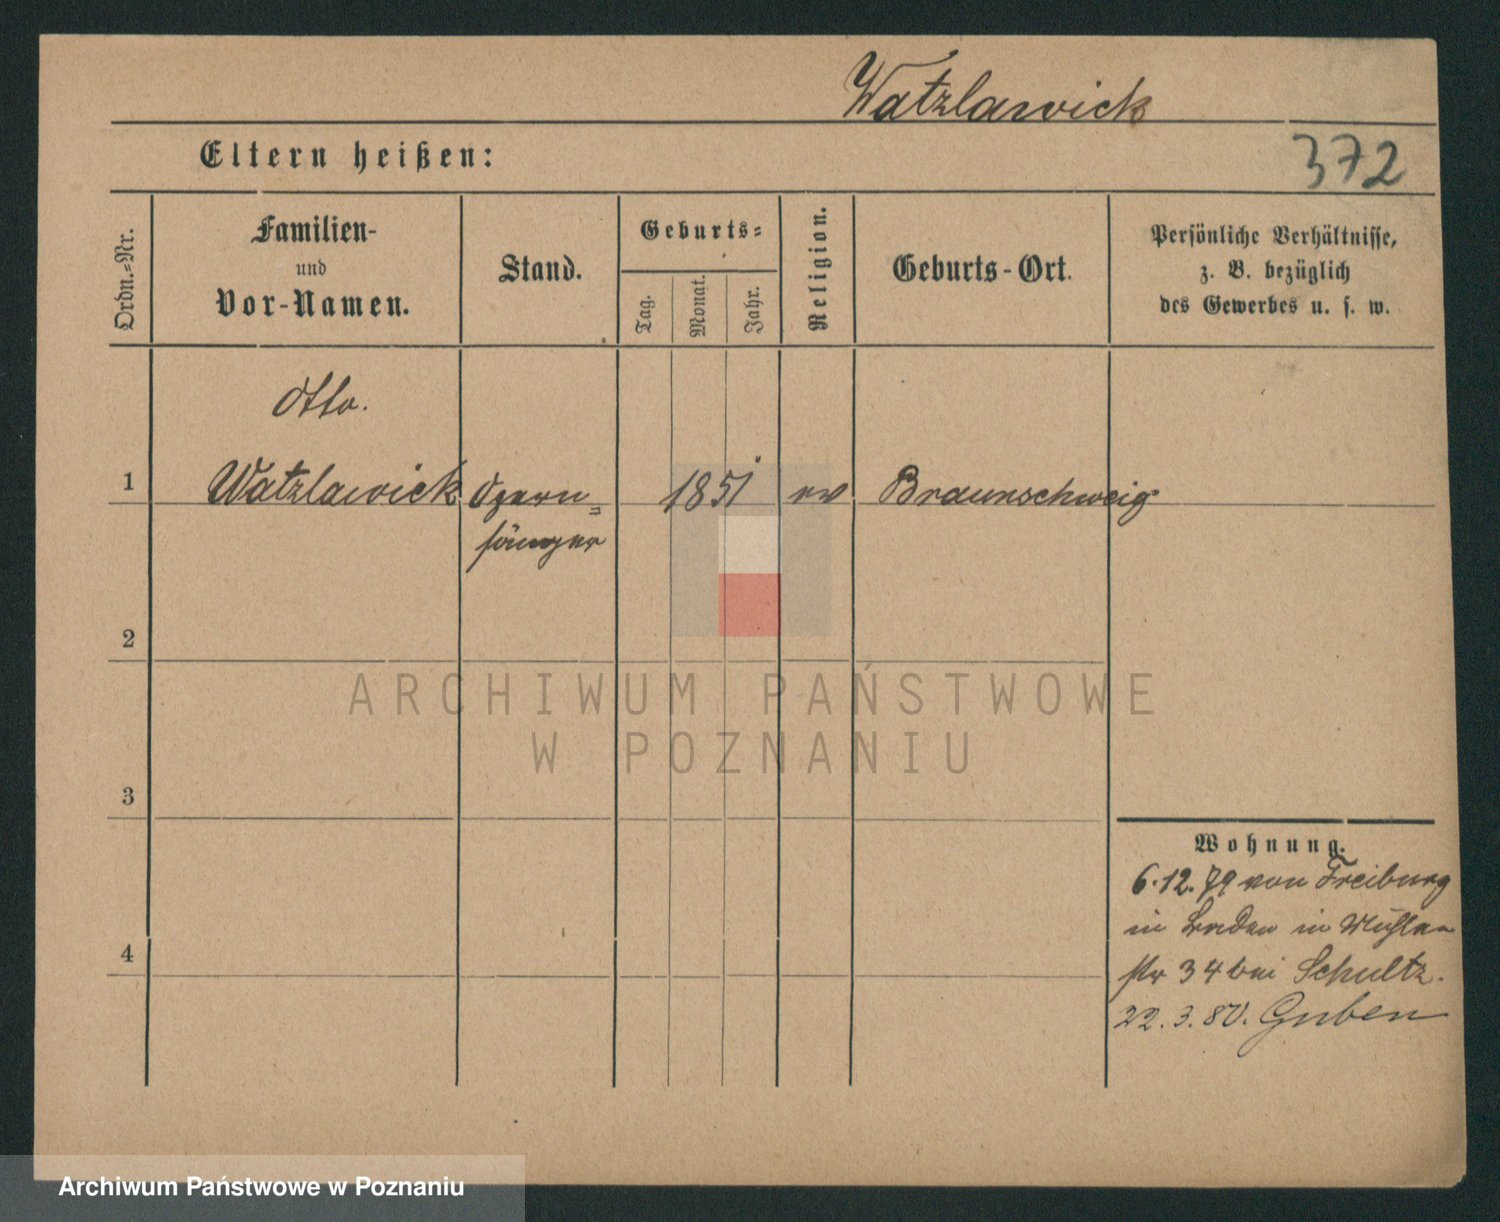 Watzlawick
372
Eltern heißen:
Ordn.=Nr.
Familien-
und
Vor-Namen.
Stand.
Geburts=
Tag.
Monat.
Jahr.
Religion.
Geburts-Ort.
Persönliche Verhältnisse,
z. B. bezüglich
des Gewerbes u. s. w.
Otto.
1 Watzlawick Opern= 1851 ev Braunschweig
sänger
2
ARCHIWUM PAŃSTWOWE
W POZNANIU
3
Wohnung.
6.12.79 von Freiburg
in Baden in Mühlen
str 34 bei Schultz.
4
22.3.80. Guben
Archiwum Państwowe w Poznaniu